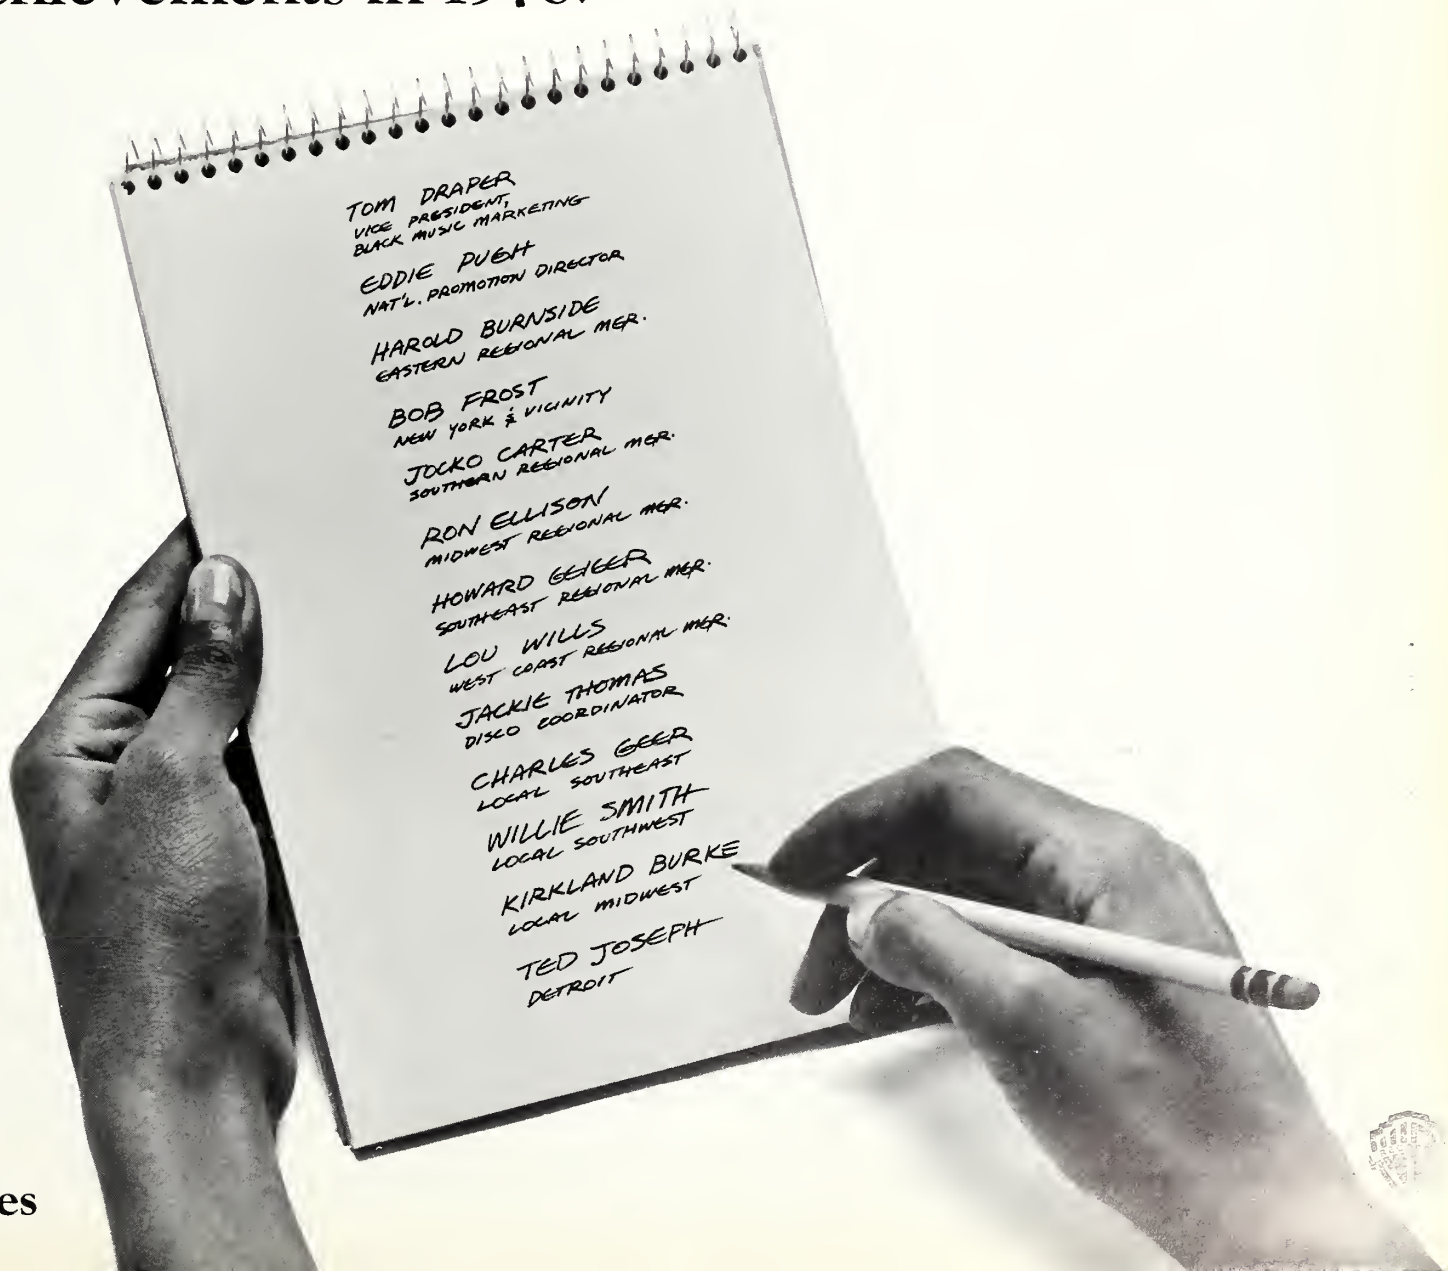 in 1976.
TOM DRAPER
VICE PRESIDENT,
BLACK MUSIC MARKETING
EDDIE PUGH
NAT'L. PROMOTION DIRECTOR
HAROLD BURNSIDE
EASTERN REGIONAL MGR.
BOB FROST
NEW YORK & VICINITY
JOCKO CARTER
SOUTHERN REGIONAL MGR.
RON ELLISON
MIDWEST REGIONAL MGR.
HOWARD GEIGER
SOUTHEAST REGIONAL MGR.
LOU WILLS
WEST COAST REGIONAL MGR.
JACKIE THOMAS
DISCO COORDINATOR
CHARLES GEER
LOCAL SOUTHEAST
WILLIE SMITH
LOCAL SOUTHWEST
KIRKLAND BURKE
LOCAL MIDWEST
TED JOSEPH
DETROIT
es